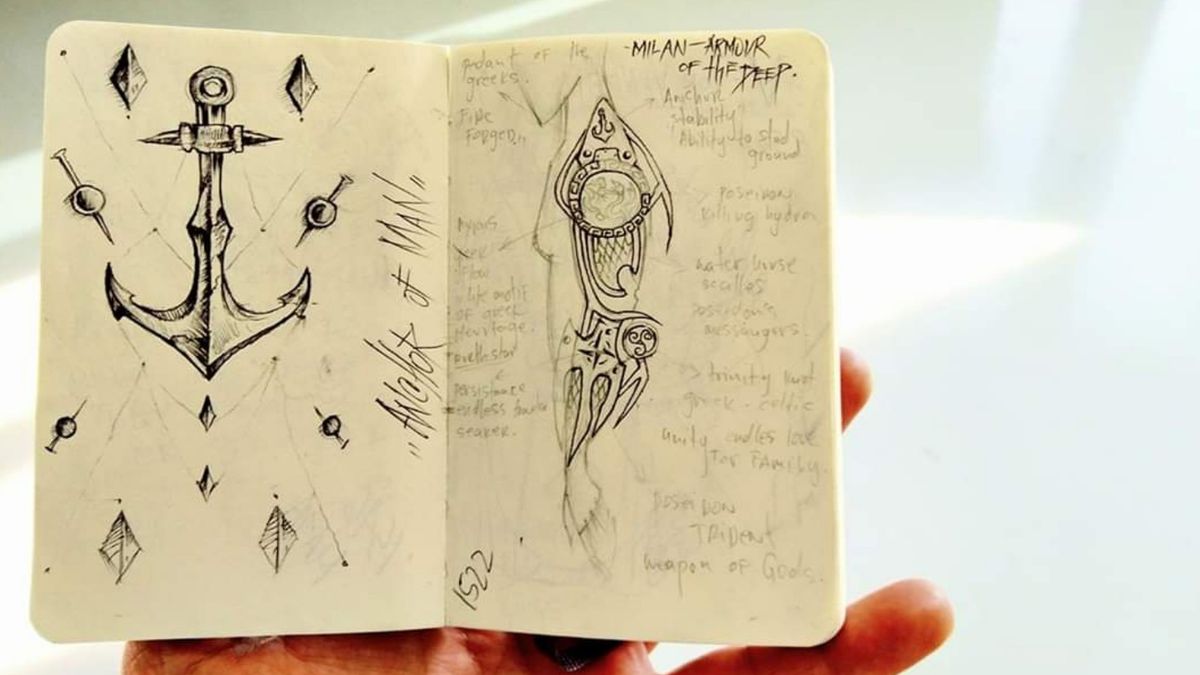 "ANCHOR of MAN"
MILAN - ARMOUR
OF the DEEP.
of the
greeks.
FIRE
FORGED,,
Anchor
stability
Ability to stand
ground
> Poseidon
killing hydra
> water horse
scalles
poseidon's
messengers.
flow
life motif
of greek
Heritage.
> trinity knot
greek - celtic
unity endles love
for FAMILY.
persistance
endless
seaker.
POSEIDON
TRIDENT
weapon of Gods.
1522